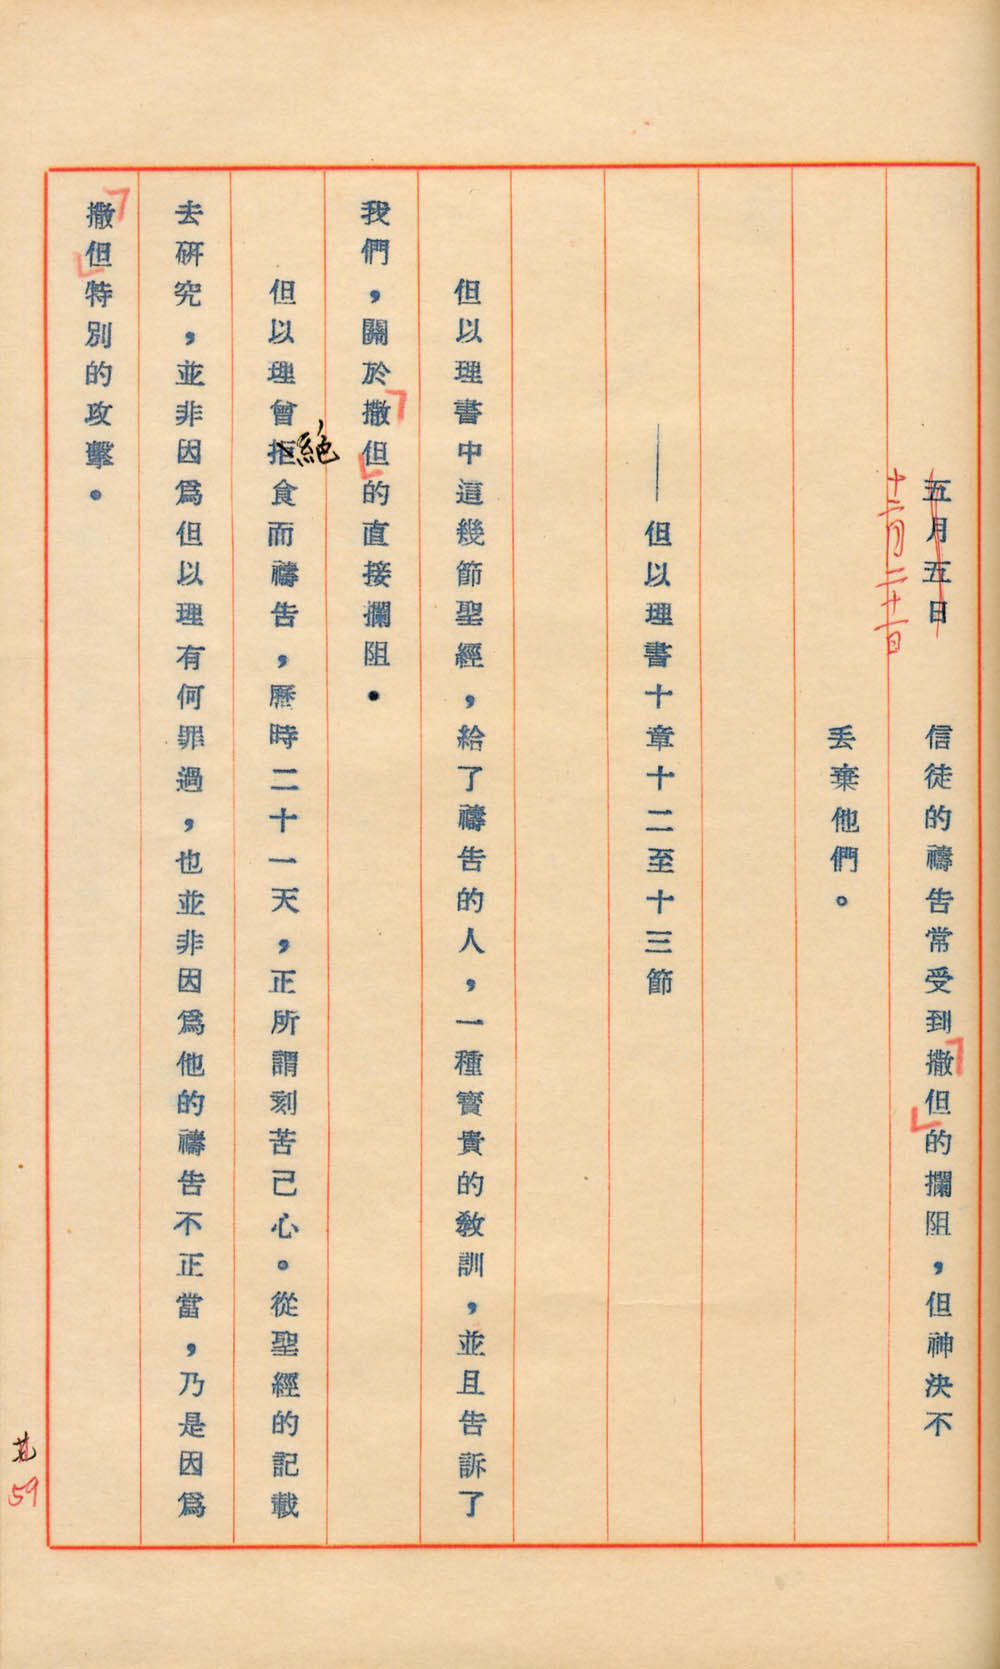 五月五日　信徒的禱告常受到「撒但」的攔阻，但神決不
十二月二十一日
丢棄他們。
——但以理書十章十二至十三節
但以理書中這幾節聖經，給了禱告的人，一種寶貴的教訓，並且告訴了
我們，關於「撒但」的直接攔阻。
但以理曾拒絕食而禱告，歷時二十一天，正所謂刻苦己心。從聖經的記載
去研究，並非因爲但以理有何罪過，也並非因爲他的禱告不正當，乃是因爲
「撒但」特別的攻擊。
59